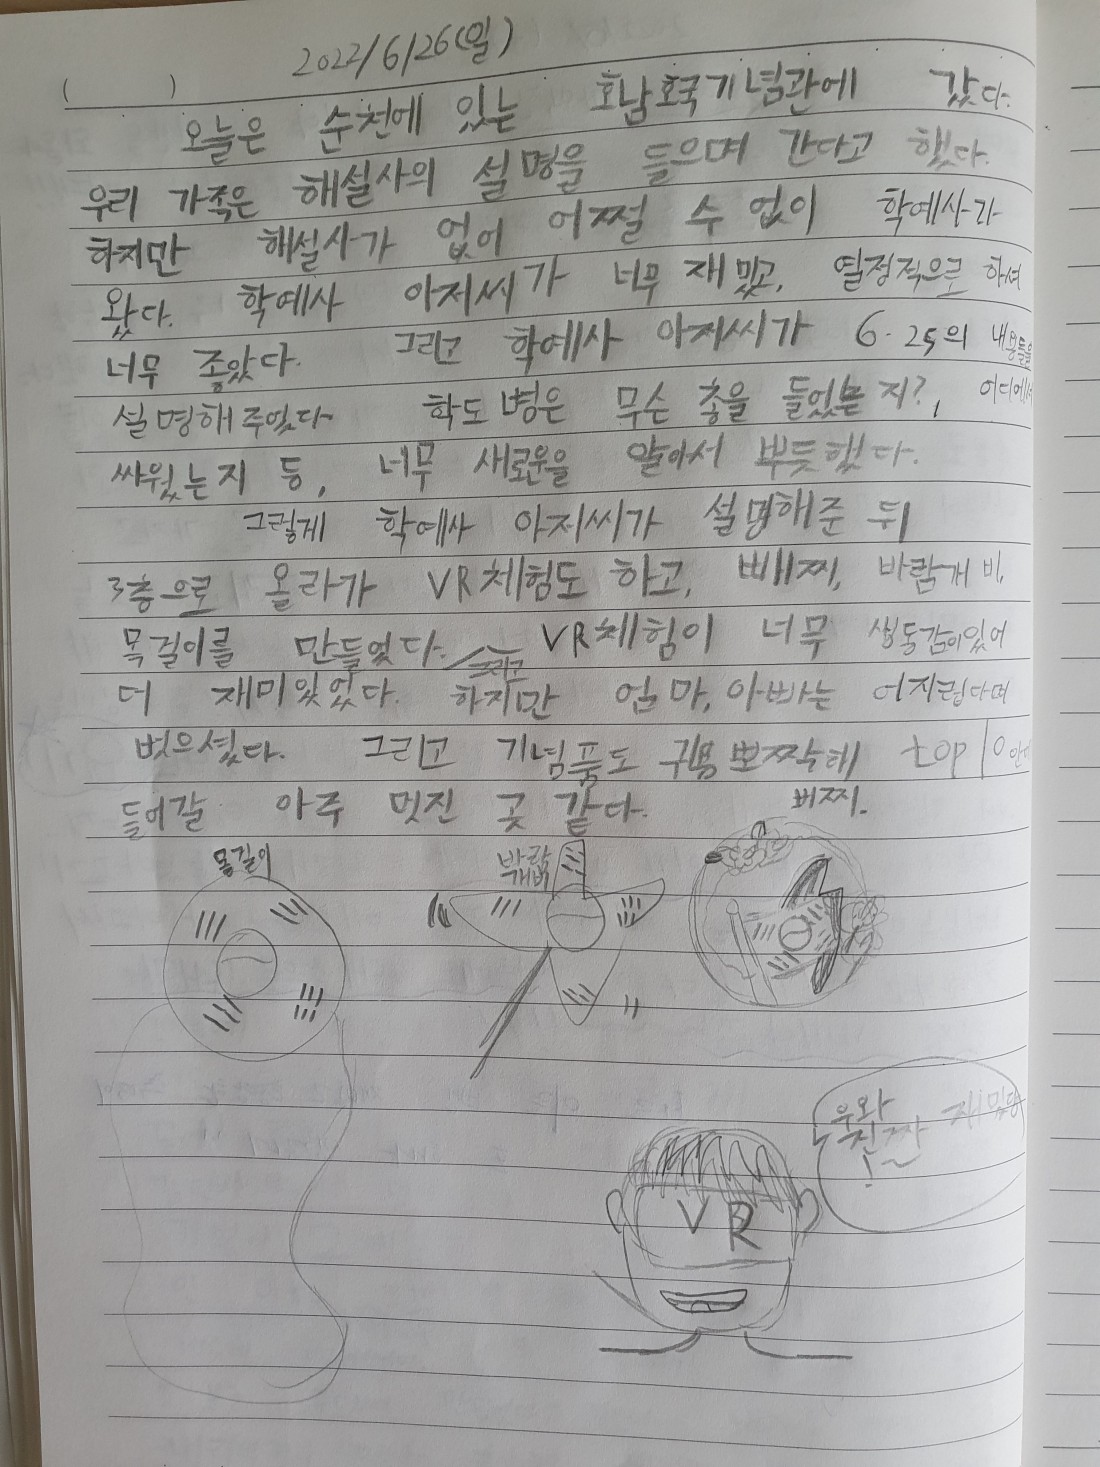 2022/6/26(일)
(          )
오늘은 순천에 있는 호남호국기념관에 갔다.
우리 가족은 해설사의 설명을 들으며 간다고 했다.
하지만 해설사가 없어 어쩔 수 없이 학예사가
왔다. 학예사 아저씨가 너무 재밌고, 열정적으로 하셔
너무 좋았다. 그리고 학예사 아저씨가 6·25의 내용들을
설명해 주었다 학도병은 무슨 총을 들었는지?, 어디에서
싸웠는지 등, 너무 새로운을 알아서 뿌듯했다.
그렇게 학예사 아저씨가 설명해준 뒤
3층으로 올라가 VR체험도 하고, 뺴찌, 바람개비,
목걸이를 만들었다. 그리고 VR체험이 너무 생동감이있어
더 재미있었다. 하지만 엄마, 아빠는 어지럽다며
벗으셨다. 그리고 기념품도 top 10 안에
들어갈 아주 멋진 곳 같다.
목걸이
바람
개비
뻐찌.
우와
진짜 재밌당
!~
VR